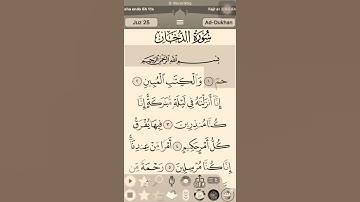 Recording
sha ends 6h 11m
Juz 25
Ad-Dukhan
سُورَةُ الدُّخَانِ
بِسْمِ اللَّهِ الرَّحْمَٰنِ الرَّحِيمِ
حمٓ ١ وَالْكِتَٰبِ الْمُبِينِ ٢
إِنَّا أَنزَلْنَٰهُ فِى لَيْلَةٍ مُّبَٰرَكَةٍ إِنَّا
كُنَّا مُنذِرِينَ ٣ فِيهَا يُفْرَقُ
كُلُّ أَمْرٍ حَكِيمٍ ٤ أَمْرًا مِّنْ عِندِنَا
إِنَّا كُنَّا مُرْسِلِينَ ٥ رَحْمَةً مِّن